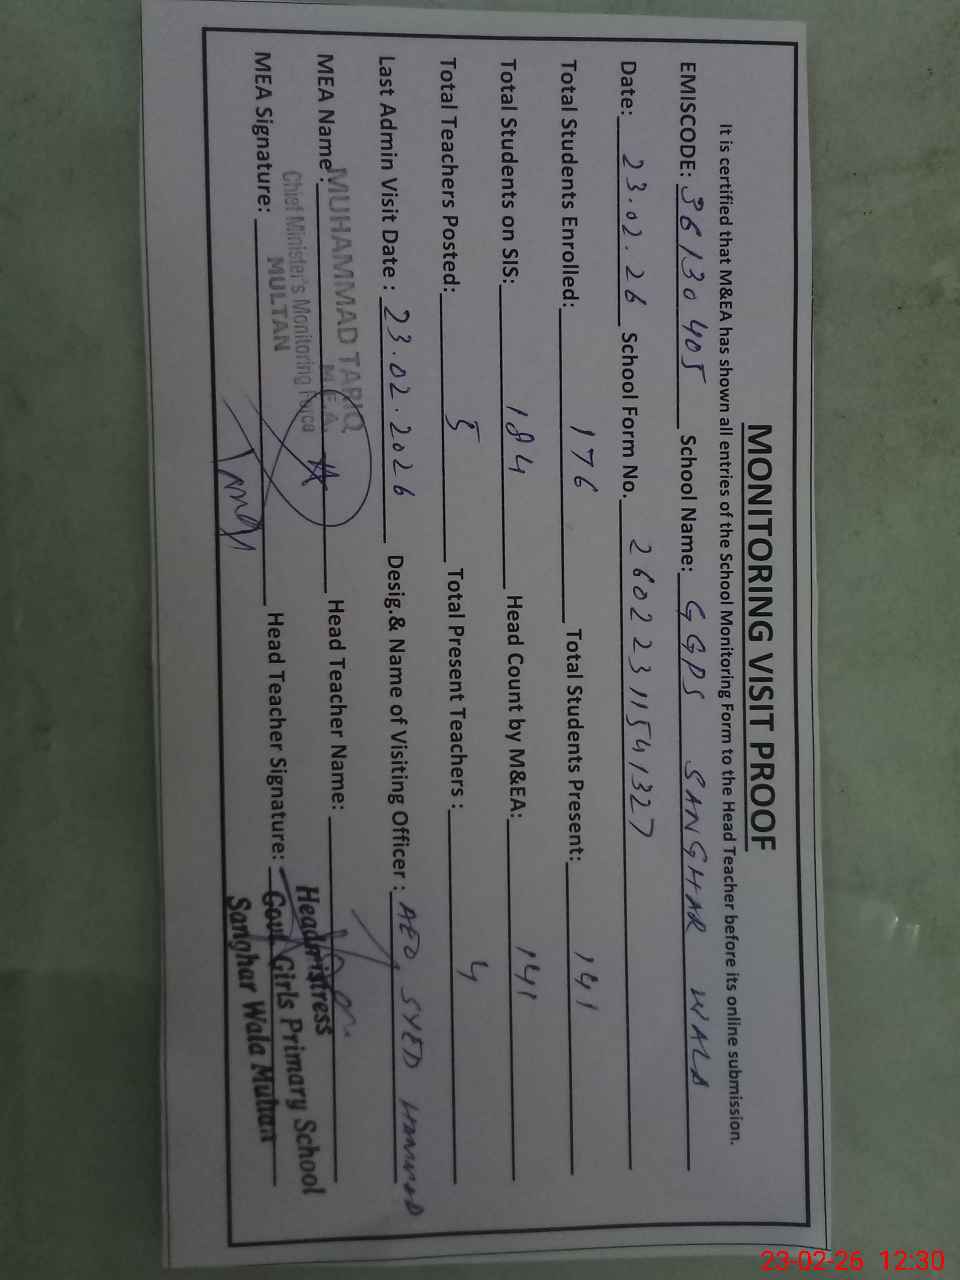 MONITORING VISIT PROOF
It is certified that M&EA has shown all entries of the School Monitoring Form to the Head Teacher before its online submission.
EMISCODE: 36130405 School Name: GGPS SANGHAR WALA
Date: 23.02.26 School Form No. 26022311541327
Total Students Enrolled: 176 Total Students Present: 141
Total Students on SIS: 184 Head Count by M&EA: 141
Total Teachers Posted: 5 Total Present Teachers : 4
Last Admin Visit Date : 23.02.2026 Desig.& Name of Visiting Officer : AEO, SYED HAMMAD
MEA Name: MUHAMMAD TARIQ Head Teacher Name:
M.E.A.
Chief Minister's Monitoring Force
MULTAN
MEA Signature: Head Teacher Signature:
Headmistress
Govt. Girls Primary School
Sanghar Wala Multan
23-02-26 12:30